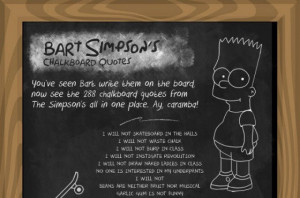 BART SIMPSON'S
CHALKBOARD QUOTES
You've seen Bart write them on the board,
now see the 288 chalkboard quotes from
The Simpson's all in one place. Ay, caramba!
I WILL NOT SKATEBOARD IN THE HALLS
I WILL NOT WASTE CHALK
I WILL NOT BURP IN CLASS
I WILL NOT INSTIGATE REVOLUTION
I WILL NOT DRAW NAKED LADIES IN CLASS
NO ONE IS INTERESTED IN MY UNDERPANTS
I WILL NOT
BEANS ARE NEITHER FRUIT NOR MUSICAL
GARLIC GUM IS NOT FUNNY